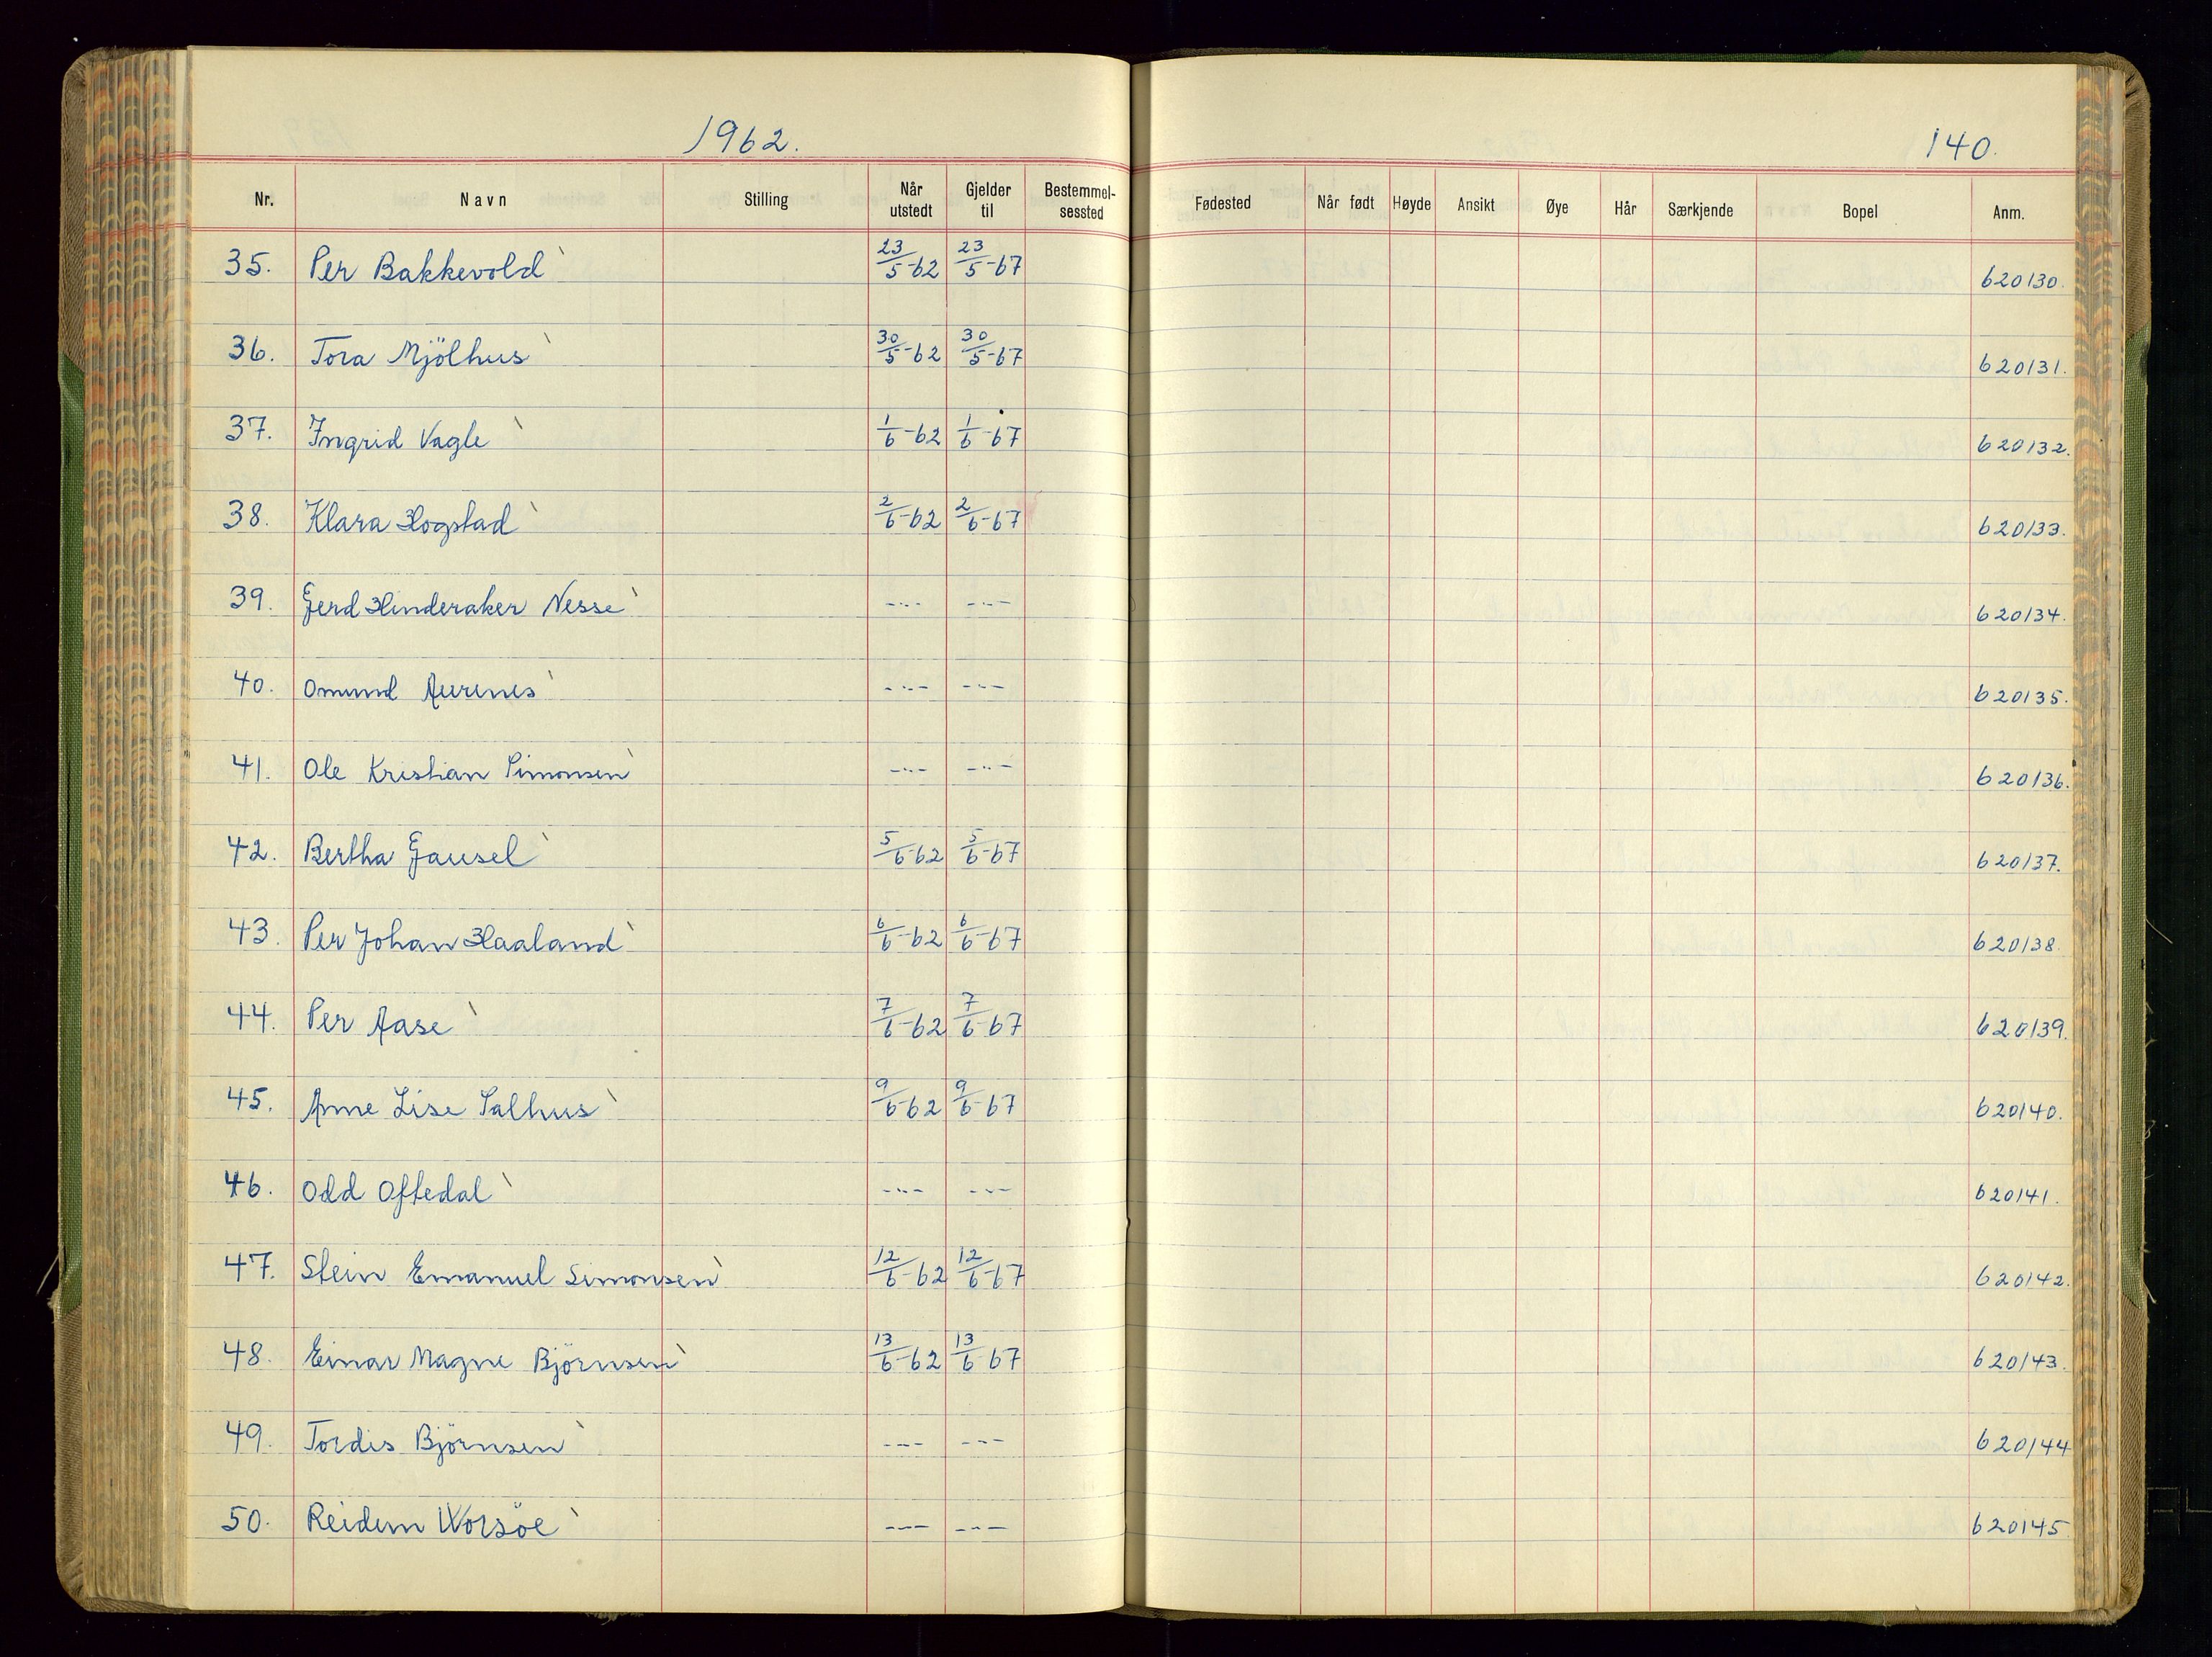 1962.
140.
Nr. Navn Stilling Når utstedt Gjelder til Bestemmelsessted Fødested Når født Høyde Ansikt Øye Hår Særkjende Bopel Anm.
35. Per Bakkevold 23/5-62 23/5-67 620130.
36. Tora Mjölhus 30/5-62 30/5-67 620131.
37. Ingrid Vagle 1/6-62 1/6-67 620132.
38. Klara Hogstad 2/6-62 2/6-67 620133.
39. Gerd Hinderaker Nesse -"- -"- 620134.
40. Omund Aurenes -"- -"- 620135.
41. Ole Kristian Simonsen -"- -"- 620136.
42. Bertha Gausel 5/6-62 5/6-67 620137.
43. Per Johan Haaland 6/6-62 6/6-67 620138.
44. Per Aase 7/6-62 7/6-67 620139.
45. Anne Lise Salhus 9/6-62 9/6-67 620140.
46. Odd Oftedal -"- -"- 620141.
47. Stein Emanuel Simonsen 12/6-62 12/6-67 620142.
48. Einar Magne Björnsen 13/6-62 13/6-67 620143.
49. Tordis Björnsen -"- -"- 620144
50. Reidun Worsöe -"- -"- 620145